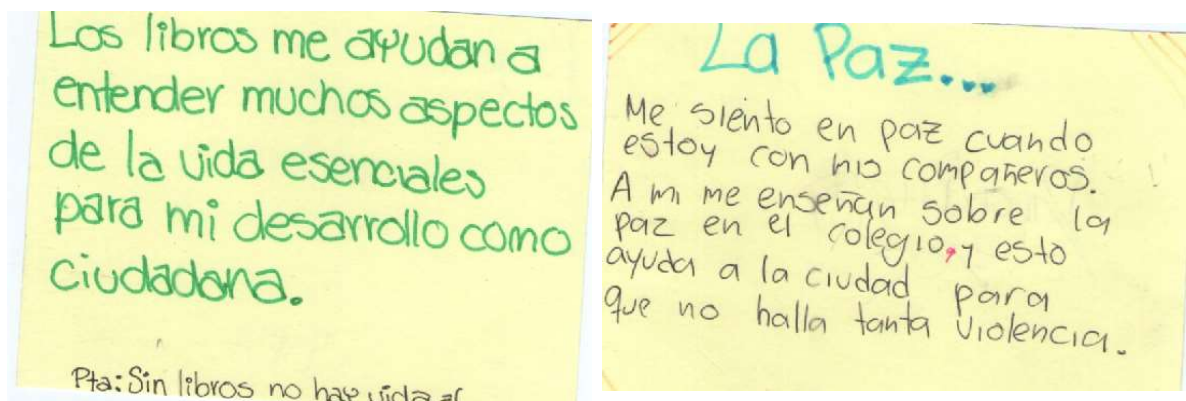 Los libros me ayudan a
entender muchos aspectos
de la vida esenciales
para mi desarrollo como
ciudadana.
Pta: Sin libros no hay vida
La Paz...
Me siento en paz cuando
estoy con mis compañeros.
A mi me enseñan sobre la
paz en el colegio, y esto
ayuda a la ciudad para
que no halla tanta violencia.